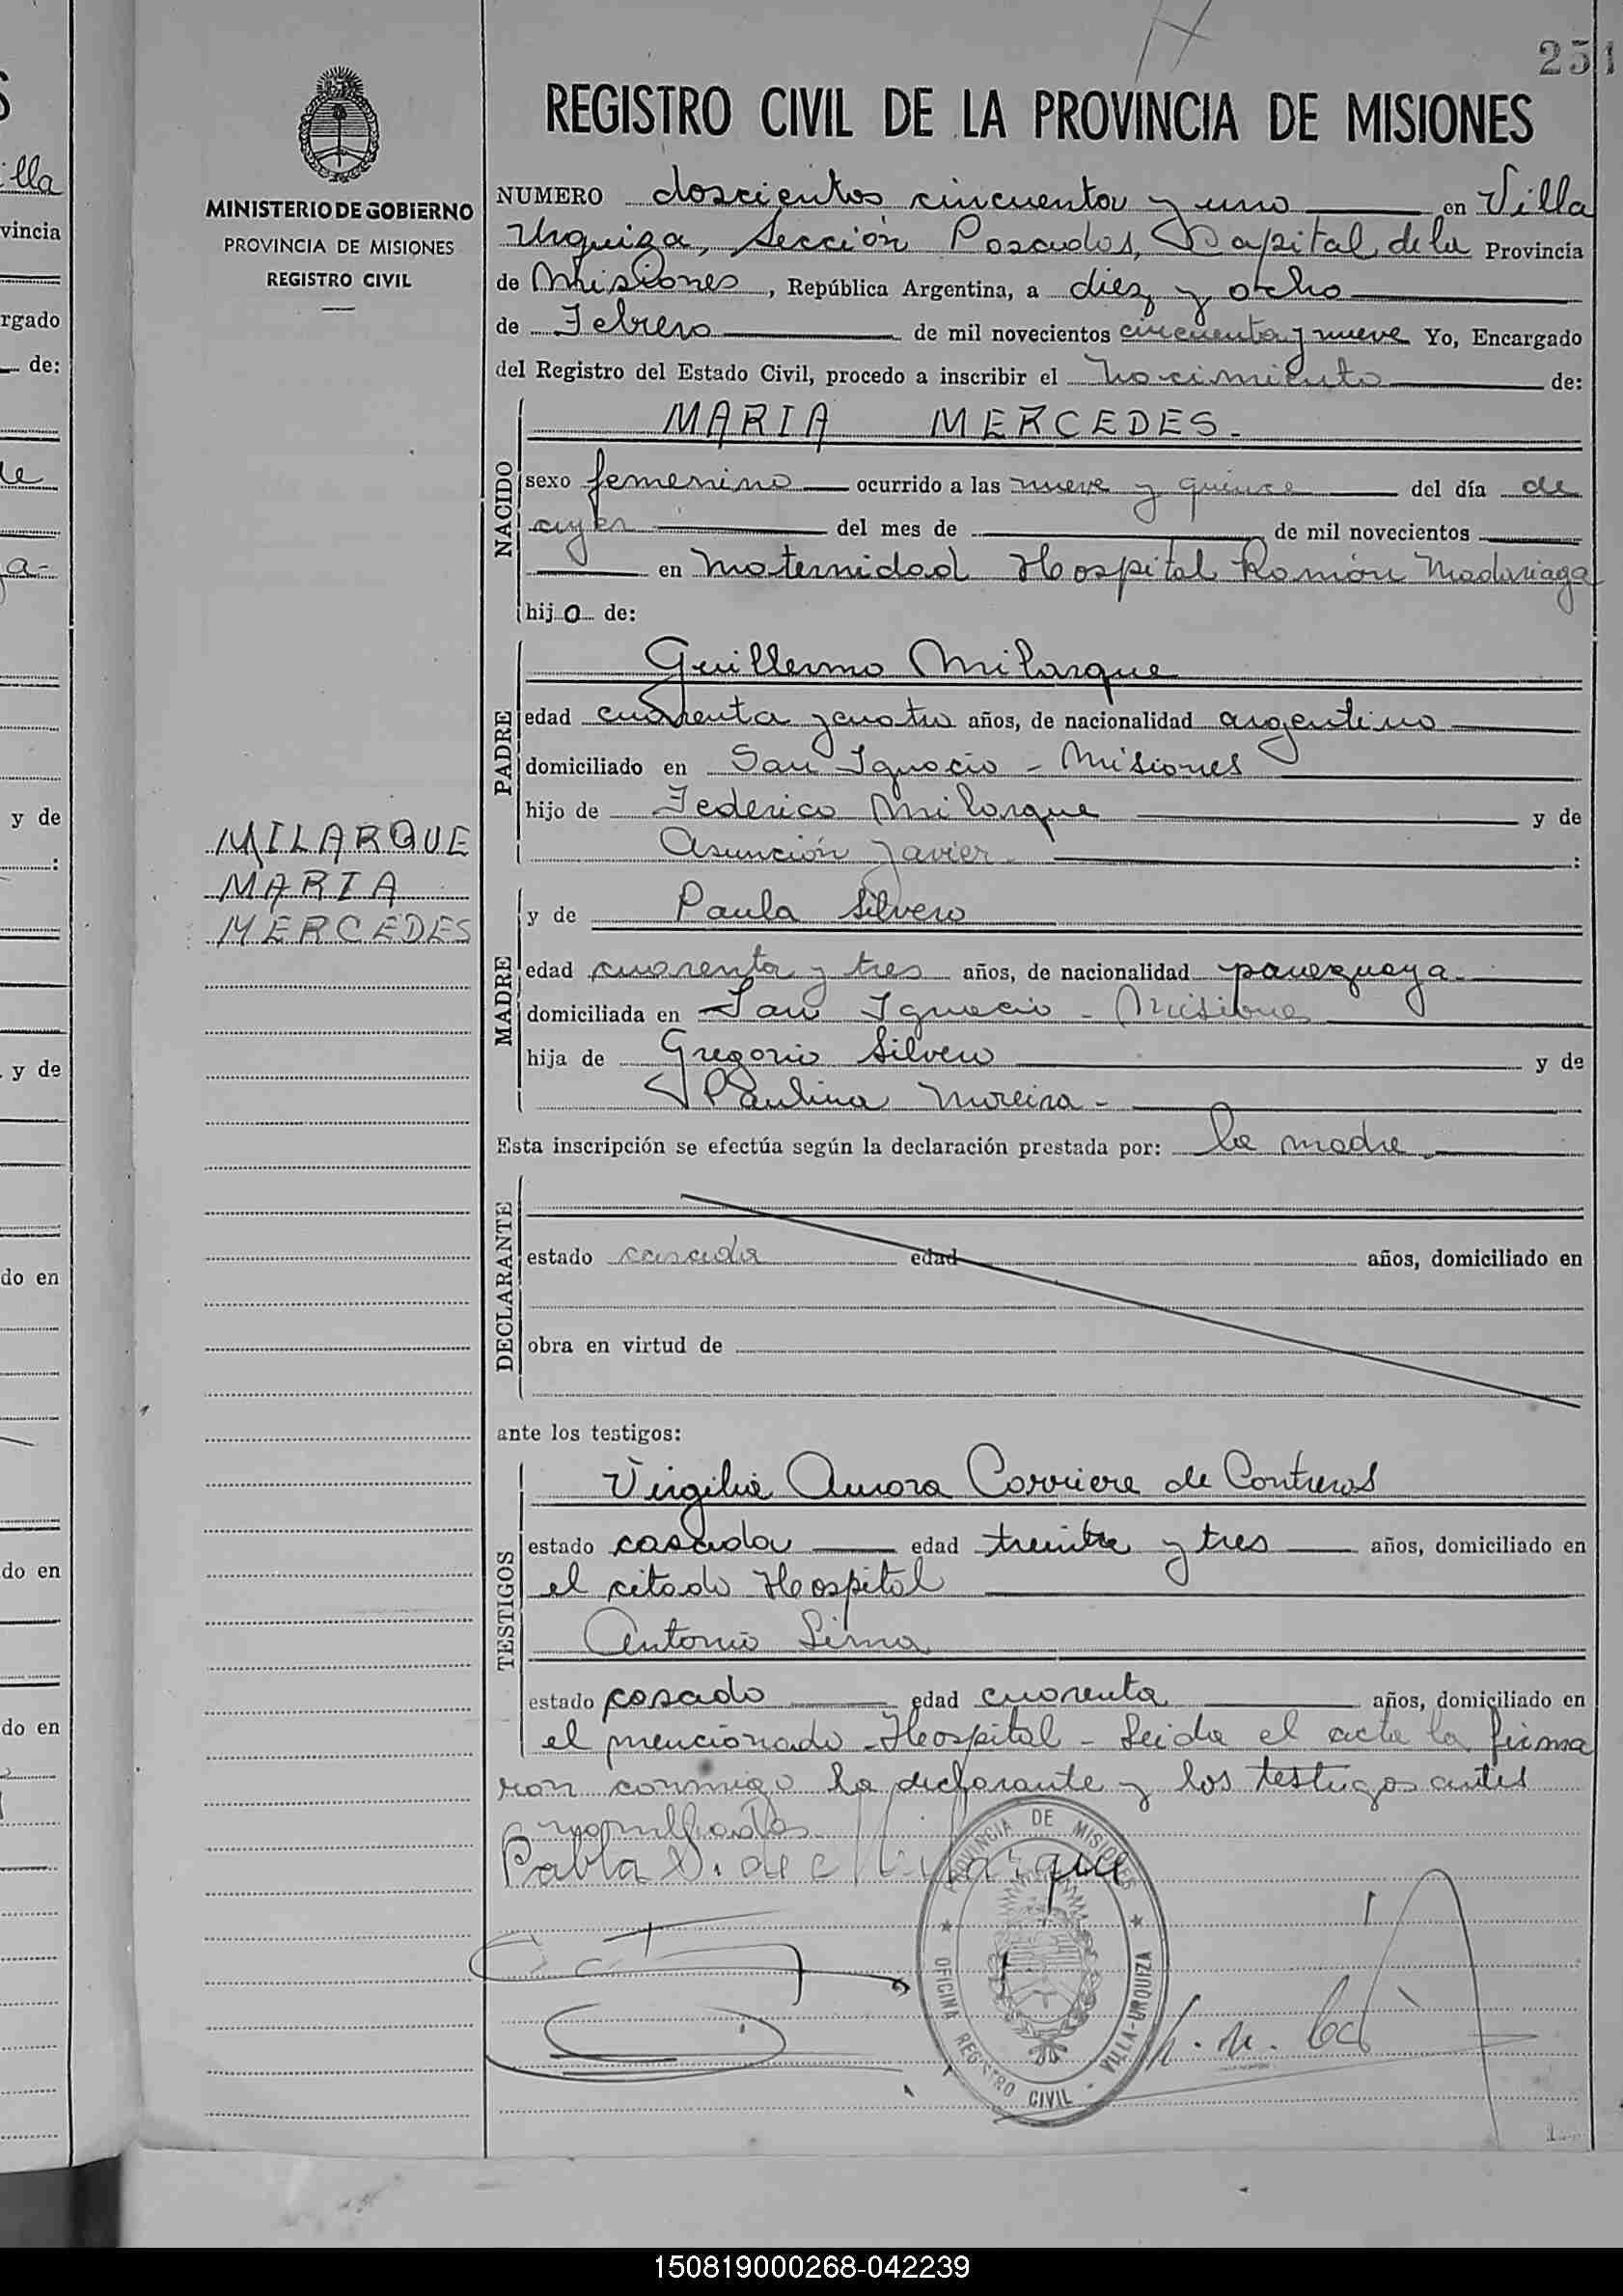 251
REGISTRO CIVIL DE LA PROVINCIA DE MISIONES
MINISTERIO DE GOBIERNO
PROVINCIA DE MISIONES
REGISTRO CIVIL
NUMERO doscientos cincuenta y uno en Villa
Urquiza, Sección Posadas, Capital de la Provincia
de Misiones, República Argentina, a diez y ocho
de Febrero de mil novecientos cincuenta y nueve Yo, Encargado
del Registro del Estado Civil, procedo a inscribir el nacimiento de:
MARIA MERCEDES.-
NACIDO
sexo femenino ocurrido a las nueve y quince del día de
ayer del mes de de mil novecientos
en Maternidad Hospital Ramón Madariaga
hija de:
Guillermo Milarque
PADRE
edad cuarenta y cuatro años, de nacionalidad argentino
domiciliado en San Ignacio - Misiones
hijo de Federico Milarque y de
Asunción Javier :
MILARQUE
MARIA
MERCEDES
y de Paula Silvero
MADRE
edad cuarenta y tres años, de nacionalidad paraguaya
domiciliada en San Ignacio - Misiones
hija de Gregorio Silvero y de
Paulina Moreira -
Esta inscripción se efectúa según la declaración prestada por: la madre
DECLARANTE
estado casada edad años, domiciliado en
obra en virtud de
ante los testigos:
TESTIGOS
Virgilia Aurora Corriere de Contreras
estado casada edad treinta y tres años, domiciliado en
el citado Hospital
Antonio Lima
estado casado edad cuarenta años, domiciliado en
el mencionado Hospital - Leida el acta la firma
ron conmigo la declarante y los testigos antes
Pabla S. de Milarque
PROVINCIA DE MISIONES
OFICINA REGISTRO CIVIL - VILLA-URQUIZA
illa
vincia
rgado
de:
y de
:
y de
do en
do en
do en
150819000268-042239